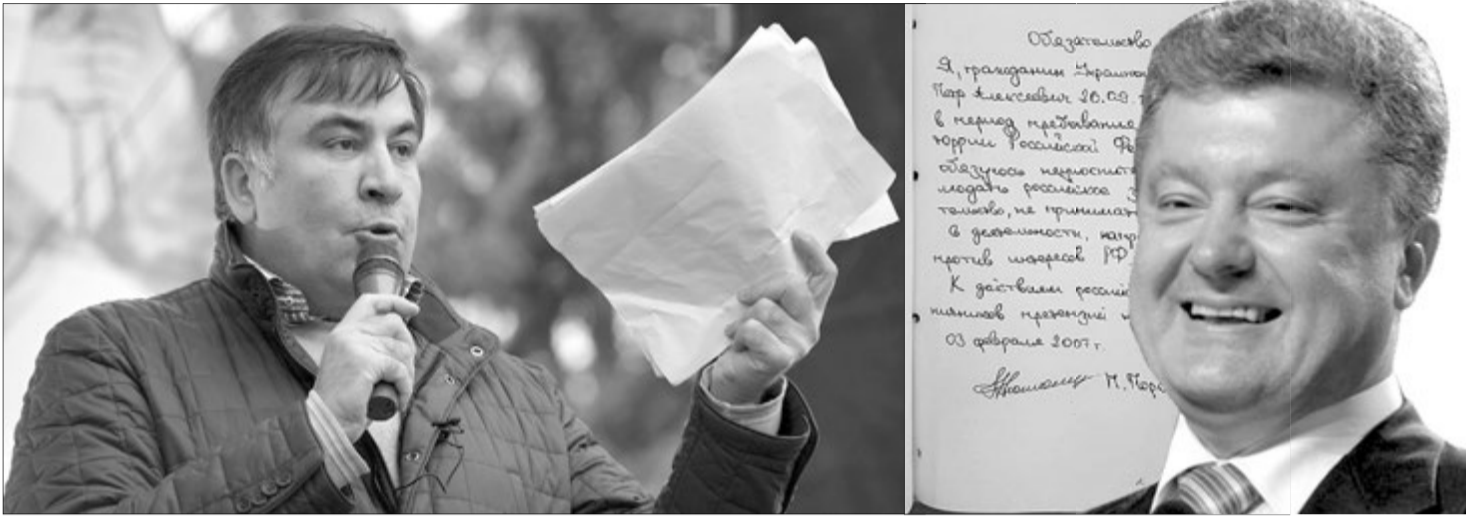 Обязательство
Я, гражданин Украины
Петр Алексеевич 26.09.
в период пребывания
Российской
обязуюсь
российское
не принимат
в деятельности, напр
против интересов РФ
К действиям россий
претензий н
03 февраля 2007 г.
П. Поро